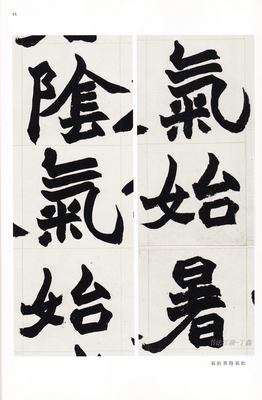 11
氣始暑
陰氣始
书法江湖·丁鑫
氣始暑陰氣始